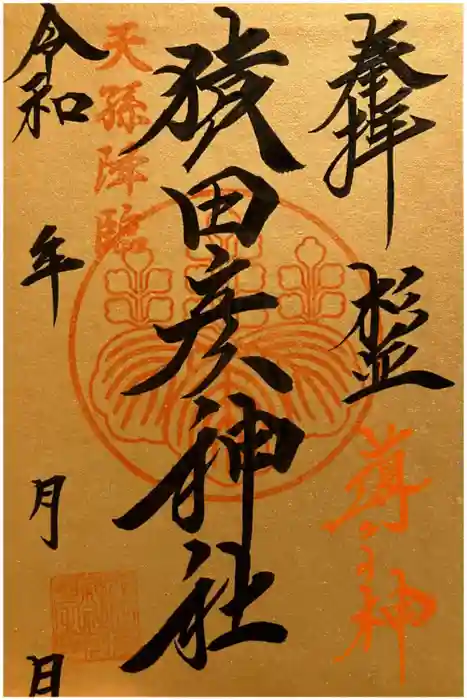 奉拝
杉並
導の神
猿田彦神社
天孫降臨
令和 年 月 日